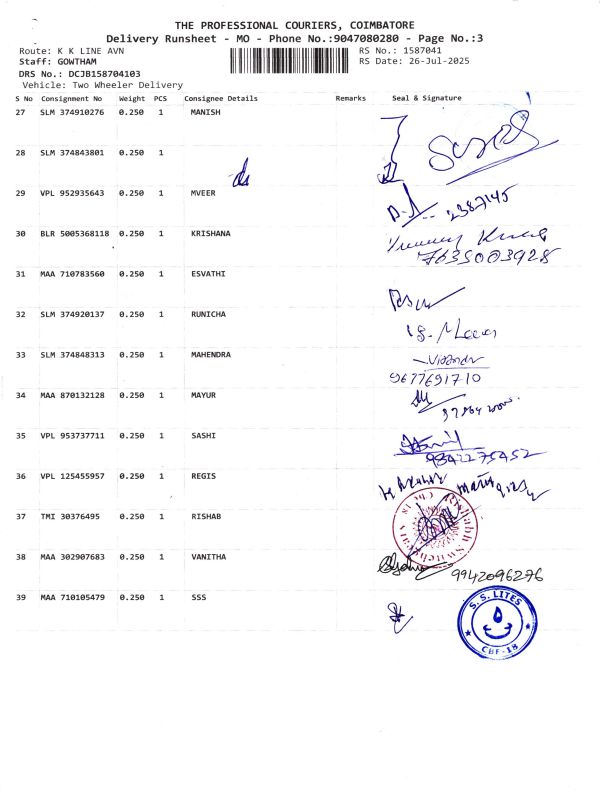 THE PROFESSIONAL COURIERS, COIMBATORE
Delivery Runsheet - MO - Phone No.:9047080280 - Page No.:3
Route: K K LINE AVN RS No.: 1587041
Staff: GOWTHAM RS Date: 26-Jul-2025
DRS No.: DCJB158704103
Vehicle: Two Wheeler Delivery
S No Consignment No Weight PCS Consignee Details Remarks Seal & Signature
27 SLM 374910276 0.250 1 MANISH
28 SLM 374843801 0.250 1
29 VPL 952935643 0.250 1 MVEER
2387145
30 BLR 5005368118 0.250 1 KRISHANA
7635003928
31 MAA 710783560 0.250 1 ESVATHI
32 SLM 374920137 0.250 1 RUNICHA
33 SLM 374848313 0.250 1 MAHENDRA
9677691710
34 MAA 870132128 0.250 1 MAYUR
35 VPL 953737711 0.250 1 SASHI
9842275452
36 VPL 125455957 0.250 1 REGIS
37 TMI 30376495 0.250 1 RISHAB
38 MAA 302907683 0.250 1 VANITHA
9942096276
39 MAA 710105479 0.250 1 SSS
S.S. LITES
CBE-18